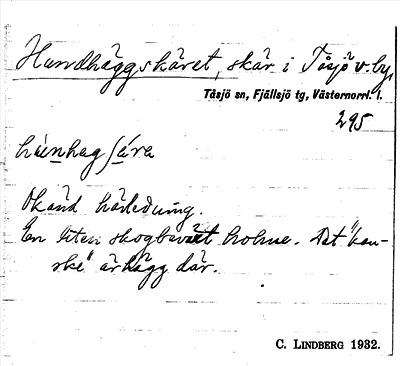 Hundhäggskäret, skär i Tåsjö v. by,
Tåsjö sn, Fjällsjö tg, Västernorrl. l.
295
Okänd härledning
En liten skogbeväxt holme. Det "kan-
ske" är hägg där.
C. LINDBERG 1932.